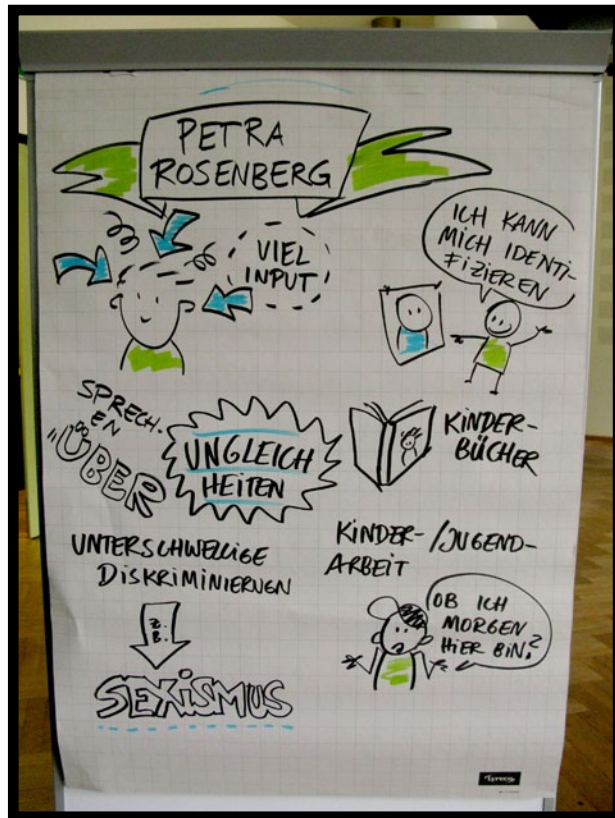 PETRA
ROSENBERG
VIEL
INPUT
ICH KANN
MICH IDENTI-
FIZIEREN
SPRECH-
EN
"ÜBER
UNGLEICH
HEITEN
KINDER-
BÜCHER
UNTERSCHWELLIGE
DISKRIMINIERUGN
Z.
B.
SEXISMUS
KINDER-/JUGEND-
ARBEIT
OB ICH
MORGEN
HIER BIN?